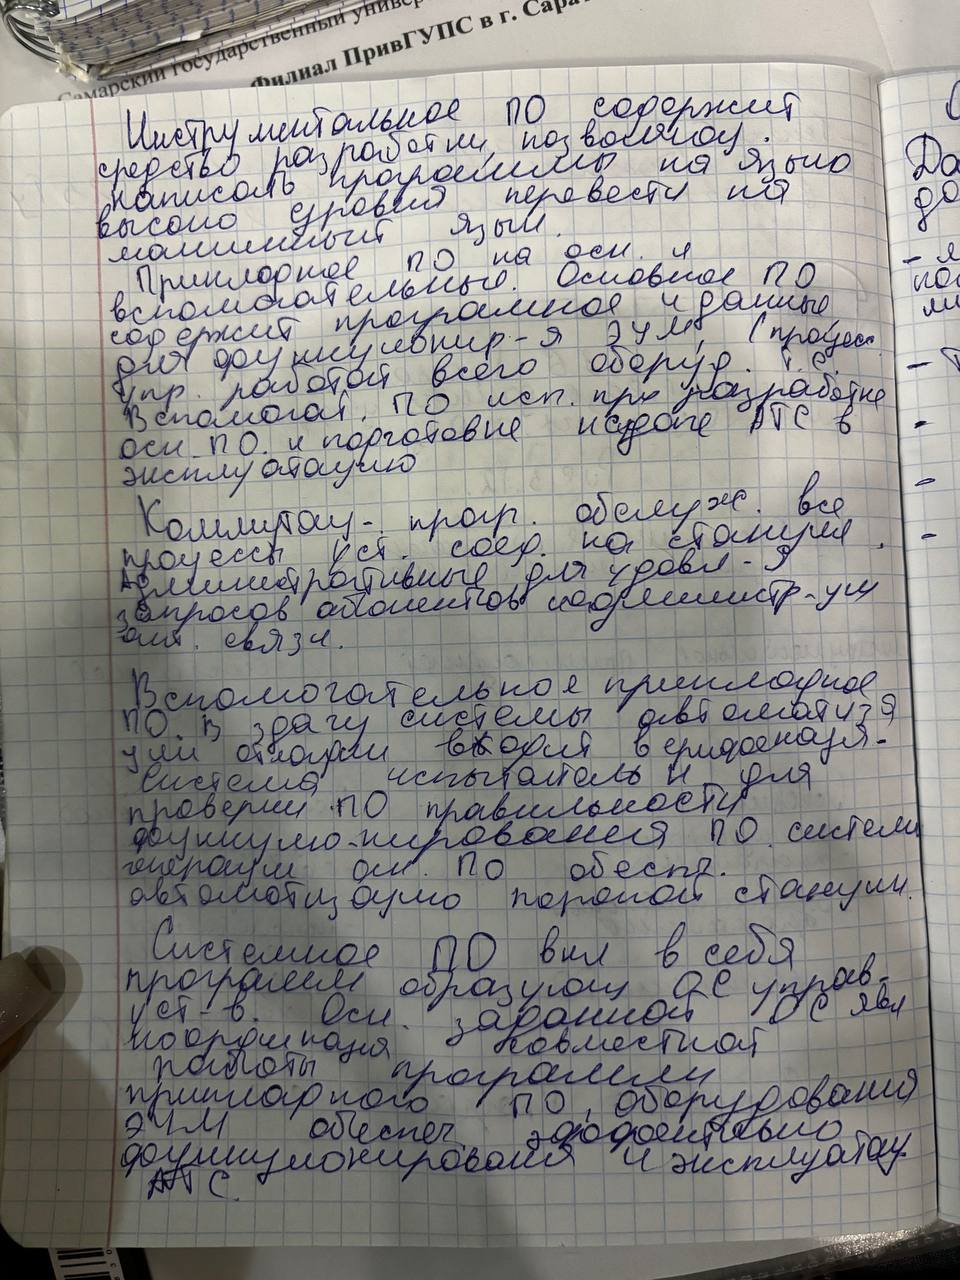 Самарский государственный универ
Филиал ПривГУПС в г. Сарат
Инструментальное ПО содержит
средство разработки, позволяющ.
написать программы на языко
высоко уровня перевести на
машинный язык.
Прикладное ПО на осн. и
вспомогательные. Основное ПО
содержит програмное и данные
для функционир-я ЭУМ, (процесс
упр. работой всего оборуд. Т.С.
Вспомогат. ПО исп. при разработке
осн. ПО. и подготовке АТС в
эксплуатацию
Коммутац-. прогр. обслуж. все
процессы уст. соед. на станции.
Административные для удовл-я
запросов абонентов и администр-ции
связи.
Вспомогательное прикладное
ПО. В здачу системы автоматиза
ции отладки входит
Система испытательн для
проверки ПО правильности
функцио-нирования ПО. системы
генерации осн. ПО обесп.
автоматизацию станции.
Системное ПО вкл в себя
программ образующ ОС управ-
уст-в. Осн. заданной ОС явл
координация совместной
работы программ
прикладного ПО, оборудования
ЭУМ обеспеч.
функционирования и эксплуатац
АТС.
До
до
- я
пос
ми
- Т
-
-
-